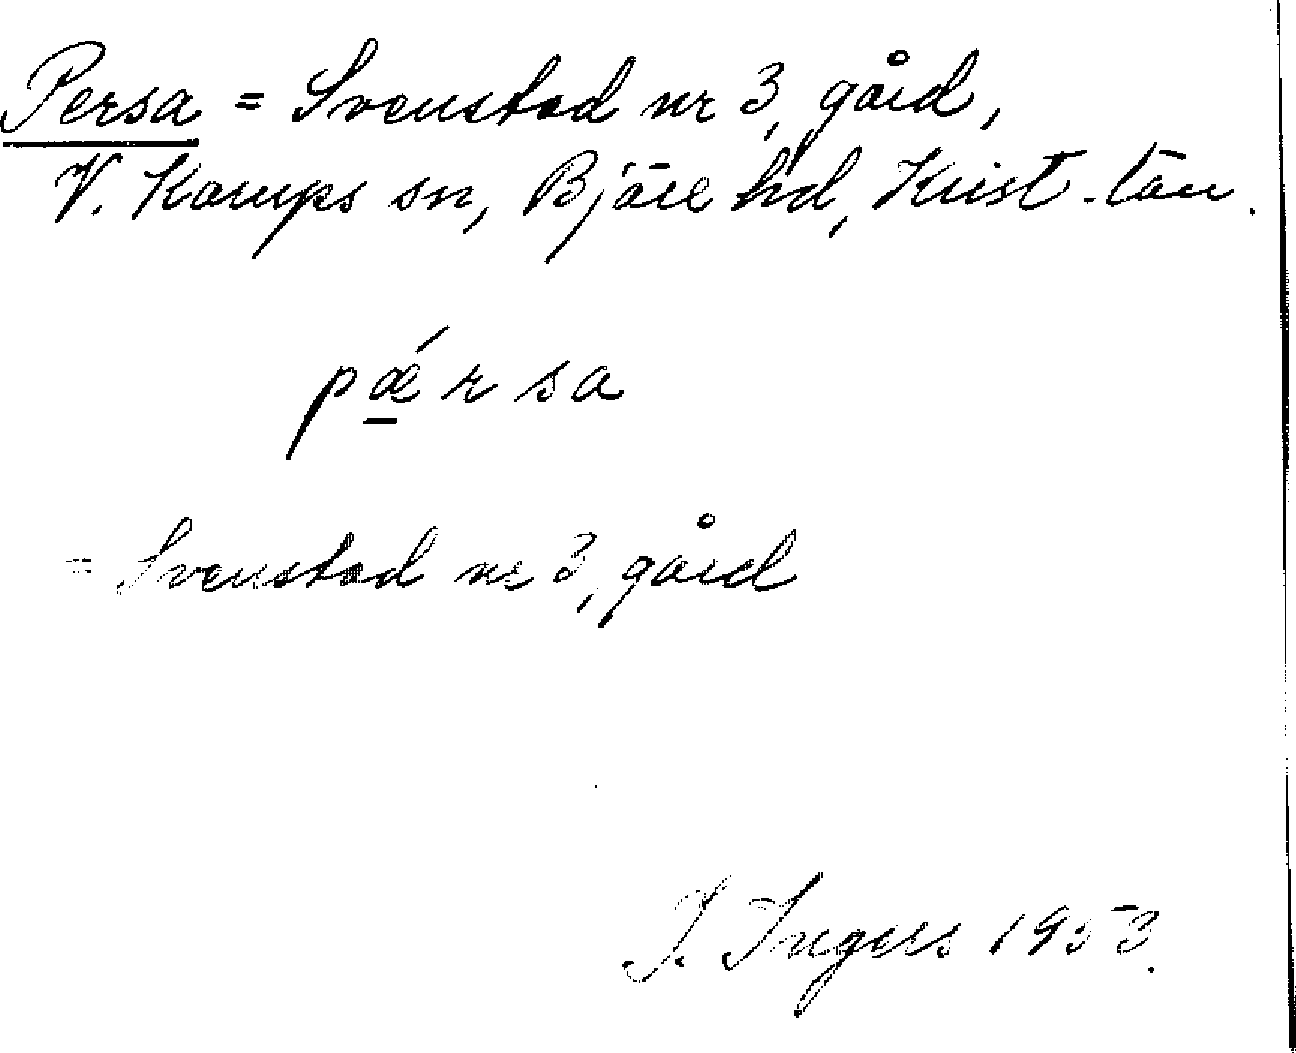 Persa = Svenstad nr 3, gård,
V. Karups sn, Bjäre hd, Krist-län.
pǽrsa
= Svenstad nr 3, gård
I. Ingers 1953.